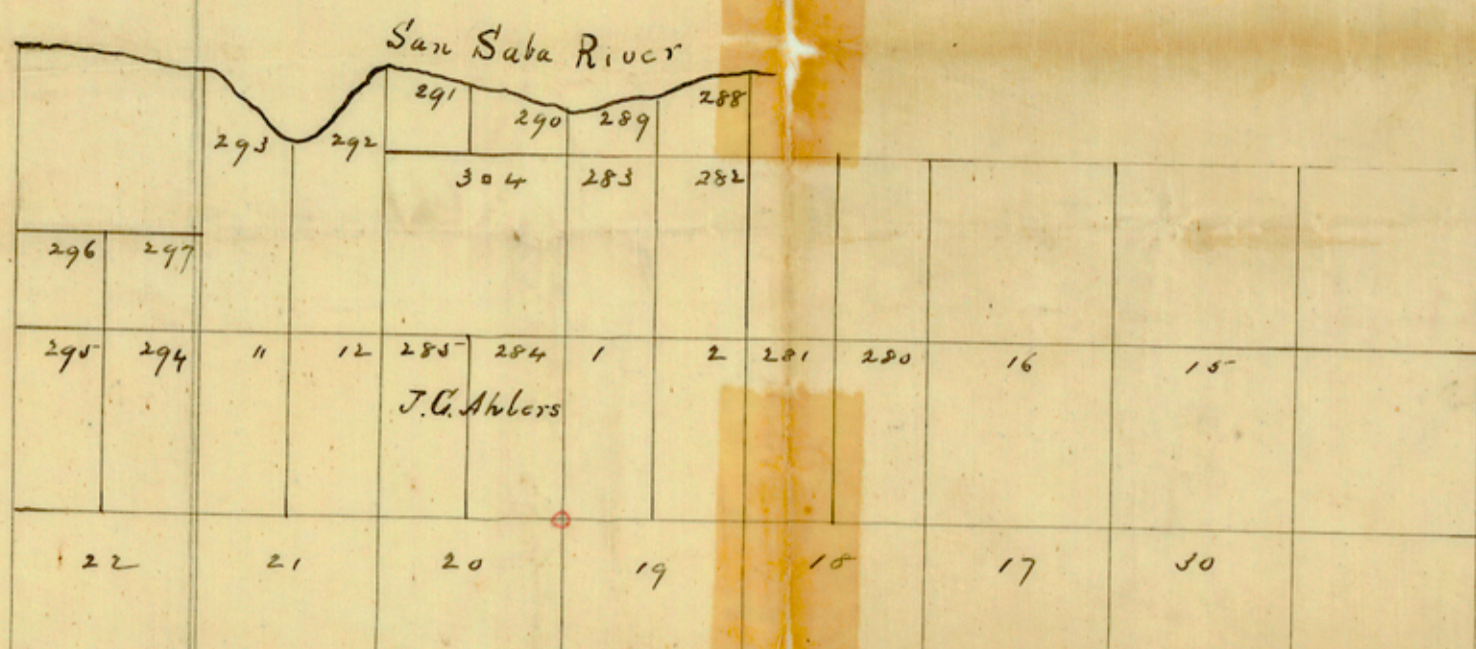 San Saba River
291 288
290 289
293 292
304 283 282
296 297
295 294 11 12 285 284 1 2 281 280 16 15
J.G. Ahlers
22 21 20 19 18 17 30